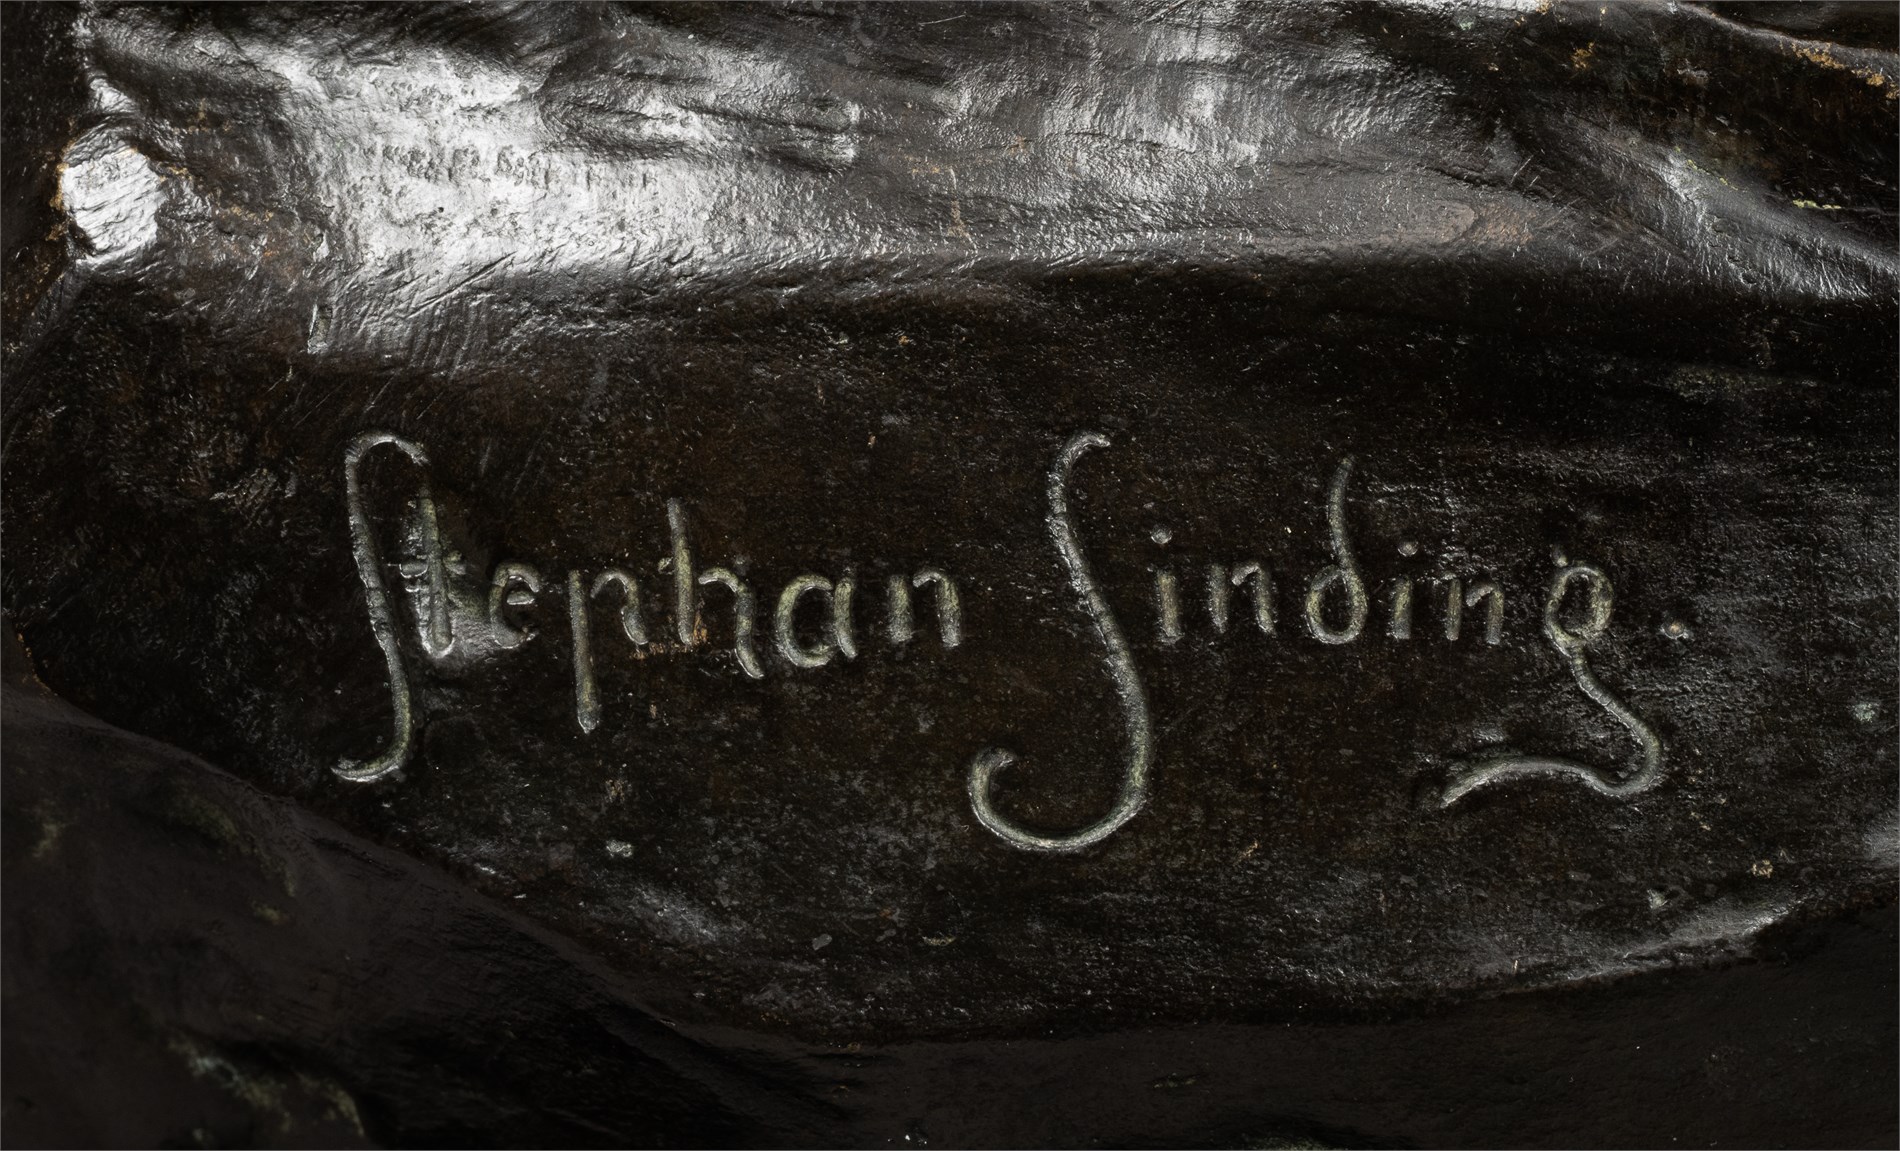 Stephan Sinding.